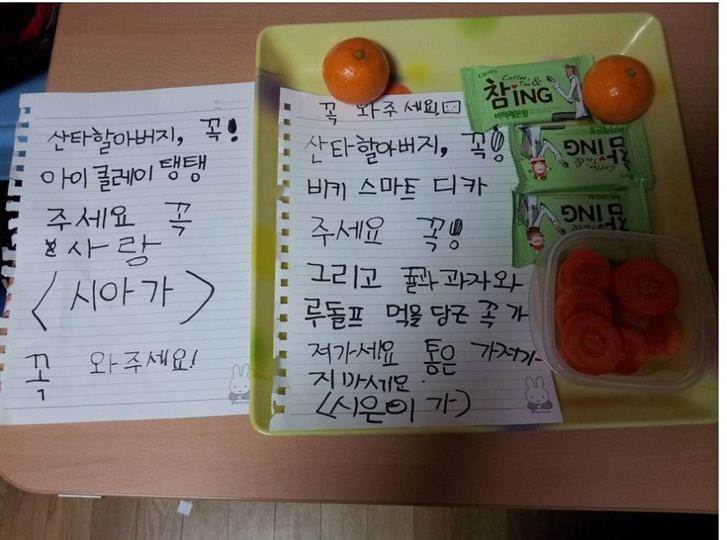 산타할아버지, 꼭!
아이클레이 탱탱
주세요 꼭
사랑
<시아가>
꼭 와주세요!
꼭 와주세요!
산타할아버지, 꼭!!
비키 스마트 디카
주세요 꼭!!
그리고 귤과 과자와
루돌프 먹을 당근 꼭 가
져가세요 통은 가져가
지마세요.
<시은이 가>
CROWN
Coffee, Tea &
참ING
버터레몬향
참ING
참ING